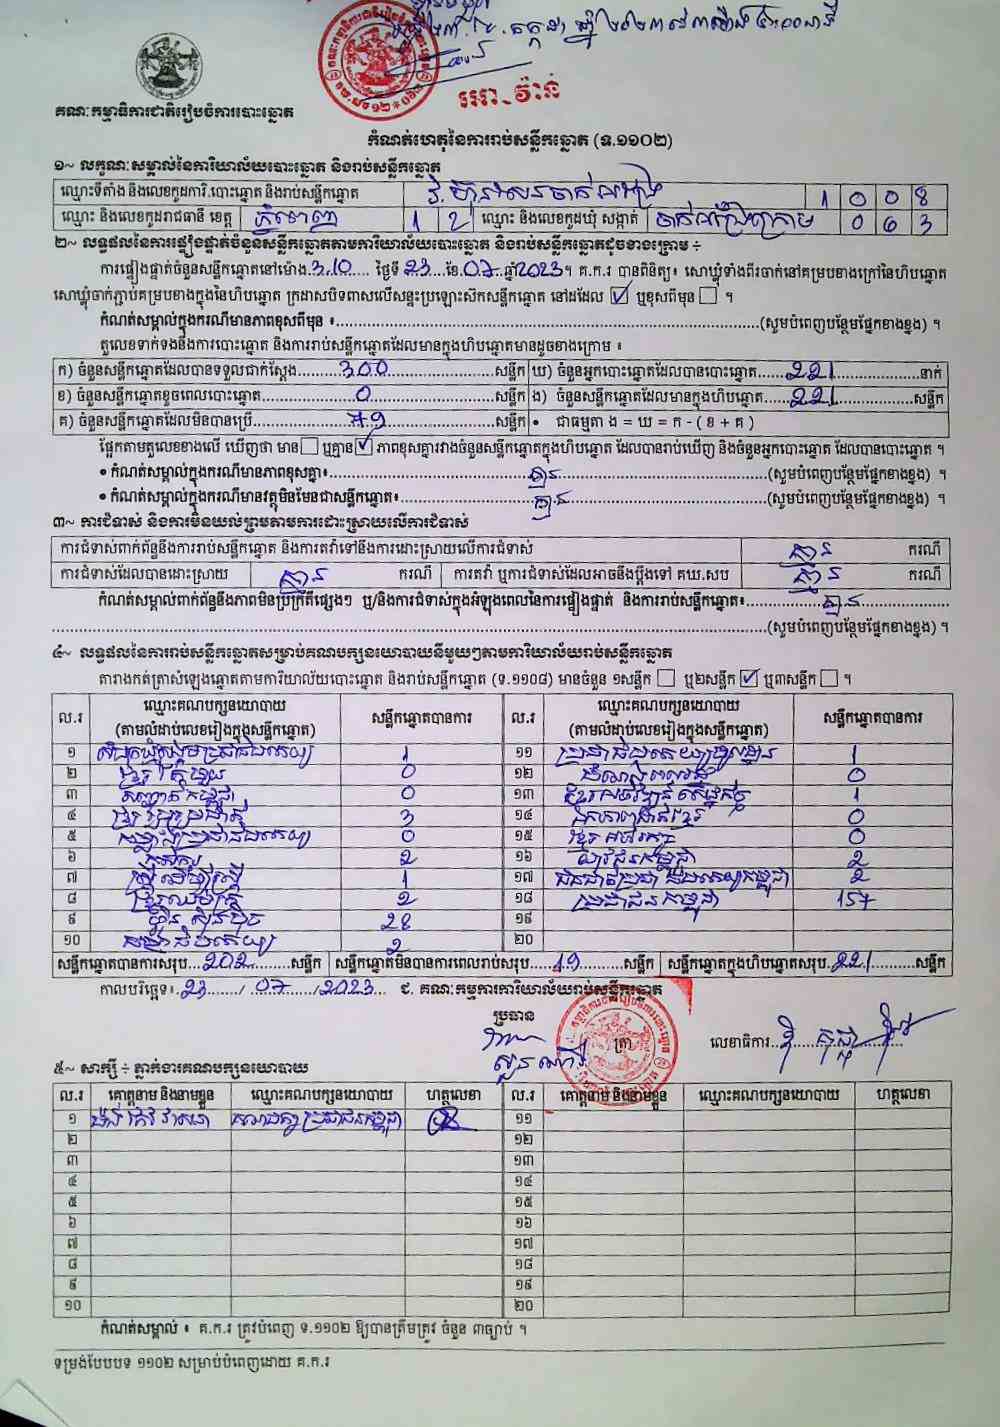 គណៈកម្មាធិការជាតិរៀបចំការបោះឆ្នោត
កំណត់ហេតុនៃការរាប់សន្លឹកឆ្នោត (ទ.១១០២)
១~ លក្ខណៈសម្គាល់នៃការិយាល័យបោះឆ្នោត និងរាប់សន្លឹកឆ្នោត
ឈ្មោះទីតាំង និងលេខកូដការិ.បោះឆ្នោត និងរាប់សន្លឹកឆ្នោត 1 0 0 8
ឈ្មោះ និងលេខកូដរាជធានី ខេត្ត ភ្នំពេញ 1 2 ឈ្មោះ និងលេខកូដឃុំ សង្កាត់ ចាក់អង្រែក្រោម 0 6 3
២~ លទ្ធផលនៃការផ្ទៀងផ្ទាត់ចំនួនសន្លឹកឆ្នោតតាមការិយាល័យបោះឆ្នោត និងរាប់សន្លឹកឆ្នោតដូចខាងក្រោម ÷
ការផ្ទៀងផ្ទាត់ចំនួនសន្លឹកឆ្នោតនៅម៉ោង 3:10 ថ្ងៃទី 23 ខែ 07 ឆ្នាំ 2023។ គ.ក.រ បានពិនិត្យ៖ សោឃ្លុំទាំងពីរចាក់នៅគម្របខាងក្រៅនៃហិបឆ្នោត
សោឃ្លុំចាក់ភ្ជាប់គម្របខាងក្នុងនៃហិបឆ្នោត ក្រដាសបិទពាសលើសន្ទះប្រឡោះស៊កសន្លឹកឆ្នោត នៅដដែល ☑ ឬខុសពីមុន ☐ ។
កំណត់សម្គាល់ក្នុងករណីមានភាពខុសពីមុន ៖ (សូមបំពេញបន្ថែមផ្នែកខាងខ្នង) ។
តួលេខទាក់ទងនឹងការបោះឆ្នោត និងការរាប់សន្លឹកឆ្នោតដែលមានក្នុងហិបឆ្នោតមានដូចខាងក្រោម ៖
ក) ចំនួនសន្លឹកឆ្នោតដែលបានទទួលជាក់ស្តែង 300 សន្លឹក ឃ) ចំនួនអ្នកបោះឆ្នោតដែលបានបោះឆ្នោត 221 នាក់
ខ) ចំនួនសន្លឹកឆ្នោតខូចពេលបោះឆ្នោត 0 សន្លឹក ង) ចំនួនសន្លឹកឆ្នោតដែលមានក្នុងហិបឆ្នោត 221 សន្លឹក
គ) ចំនួនសន្លឹកឆ្នោតដែលមិនបានប្រើ 79 សន្លឹក • ជាធម្មតា ង = ឃ = ក - ( ខ + គ )
ផ្អែកតាមតួលេខខាងលើ ឃើញថា មាន ☐ ឬគ្មាន ☑ ភាពខុសគ្នារវាងចំនួនសន្លឹកឆ្នោតក្នុងហិបឆ្នោត ដែលបានរាប់ឃើញ និងចំនួនអ្នកបោះឆ្នោត ដែលបានបោះឆ្នោត ។
• កំណត់សម្គាល់ក្នុងករណីមានភាពខុសគ្នា៖ គ្មាន (សូមបំពេញបន្ថែមផ្នែកខាងខ្នង) ។
• កំណត់សម្គាល់ក្នុងករណីមានវត្ថុមិនមែនជាសន្លឹកឆ្នោត៖ គ្មាន (សូមបំពេញបន្ថែមផ្នែកខាងខ្នង) ។
៣~ ការជំទាស់ និងការមិនយល់ព្រមតាមការដោះស្រាយលើការជំទាស់
ការជំទាស់ពាក់ព័ន្ធនឹងការរាប់សន្លឹកឆ្នោត និងការតវ៉ាទៅនឹងការដោះស្រាយលើការជំទាស់ គ្មាន ករណី
ការជំទាស់ដែលបានដោះស្រាយ គ្មាន ករណី ការតវ៉ា ឬការជំទាស់ដែលអាចនឹងប្តឹងទៅ គឃ.សប គ្មាន ករណី
កំណត់សម្គាល់ពាក់ព័ន្ធនឹងភាពមិនប្រក្រតីផ្សេងៗ ឬ/និងការជំទាស់ក្នុងអំឡុងពេលនៃការផ្ទៀងផ្ទាត់ និងការរាប់សន្លឹកឆ្នោត៖ គ្មាន
(សូមបំពេញបន្ថែមផ្នែកខាងខ្នង) ។
៤~ លទ្ធផលនៃការរាប់សន្លឹកឆ្នោតសម្រាប់គណបក្សនយោបាយនីមួយៗតាមការិយាល័យរាប់សន្លឹកឆ្នោត
តារាងកត់ត្រាសំឡេងឆ្នោតតាមការិយាល័យបោះឆ្នោត និងរាប់សន្លឹកឆ្នោត (ទ.១១០៨) មានចំនួន ១សន្លឹក ☐ ឬ២សន្លឹក ☑ ឬ៣សន្លឹក ☐ ។
ល.រ ឈ្មោះគណបក្សនយោបាយ (តាមលំដាប់លេខរៀងក្នុងសន្លឹកឆ្នោត) សន្លឹកឆ្នោតបានការ ល.រ ឈ្មោះគណបក្សនយោបាយ (តាមលំដាប់លេខរៀងក្នុងសន្លឹកឆ្នោត) សន្លឹកឆ្នោតបានការ
១ សំបុកឃ្មុំសង្គមប្រជាធិបតេយ្យ 1 ១១ ប្រជាធិបតេយ្យមូលដ្ឋាន 1
២ ខ្មែររួបរួម 0 ១២ 0
៣ កម្ពុជា 0 ១៣ ខ្មែរអភិវឌ្ឍន៍សេដ្ឋកិច្ច 1
៤ 3 ១៤ ឯកភាពជាតិខ្មែរ 0
៥ កម្លាំងប្រជាធិបតេយ្យ 0 ១៥ ខ្មែរអភិរក្ស 0
៦ កសិករ 2 ១៦ យុវជនកម្ពុជា 2
៧ ស្ត្រីដើម្បីស្ត្រី 1 ១៧ ជនជាតិប្រជាធិបតេយ្យកម្ពុជា 2
៨ 2 ១៨ ប្រជាជនកម្ពុជា 157
៩ ហ្វ៊ុនស៊ិនប៉ិច 28 ១៩
១០ ធម្មាធិបតេយ្យ 2 ២០
សន្លឹកឆ្នោតបានការសរុប 202 សន្លឹក សន្លឹកឆ្នោតមិនបានការពេលរាប់សរុប 19 សន្លឹក សន្លឹកឆ្នោតក្នុងហិបឆ្នោតសរុប 221 សន្លឹក
កាលបរិច្ឆេទ៖ 23 / 07 / 2023 ជ. គណៈកម្មការការិយាល័យរាប់សន្លឹកឆ្នោត
ប្រធាន
ត្រា
លេខាធិការ
៥~ សាក្សី ÷ ភ្នាក់ងារគណបក្សនយោបាយ
ល.រ គោត្តនាម និងនាមខ្លួន ឈ្មោះគណបក្សនយោបាយ ហត្ថលេខា ល.រ គោត្តនាម និងនាមខ្លួន ឈ្មោះគណបក្សនយោបាយ ហត្ថលេខា
១ គណបក្សប្រជាជនកម្ពុជា ១១
២ ១២
៣ ១៣
៤ ១៤
៥ ១៥
៦ ១៦
៧ ១៧
៨ ១៨
៩ ១៩
១០ ២០
កំណត់សម្គាល់ ៖ គ.ក.រ ត្រូវបំពេញ ទ.១១០២ ឱ្យបានត្រឹមត្រូវ ចំនួន ៣ច្បាប់ ។
ទម្រង់បែបបទ ១១០២ សម្រាប់បំពេញដោយ គ.ក.រ